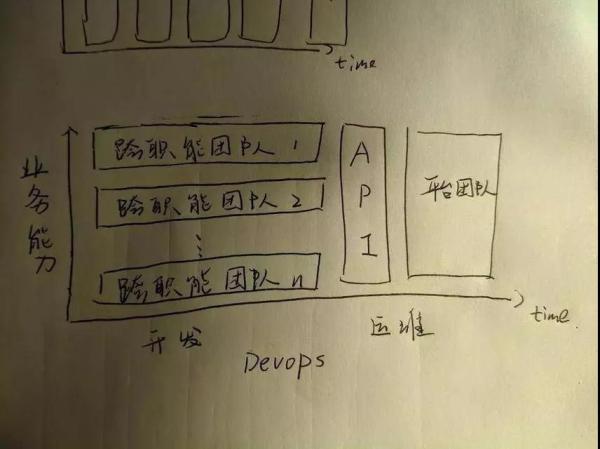 time
业务能力
跨职能团队 1
跨职能团队 2
跨职能团队 n
API
平台团队
time
开发
运维
Devops